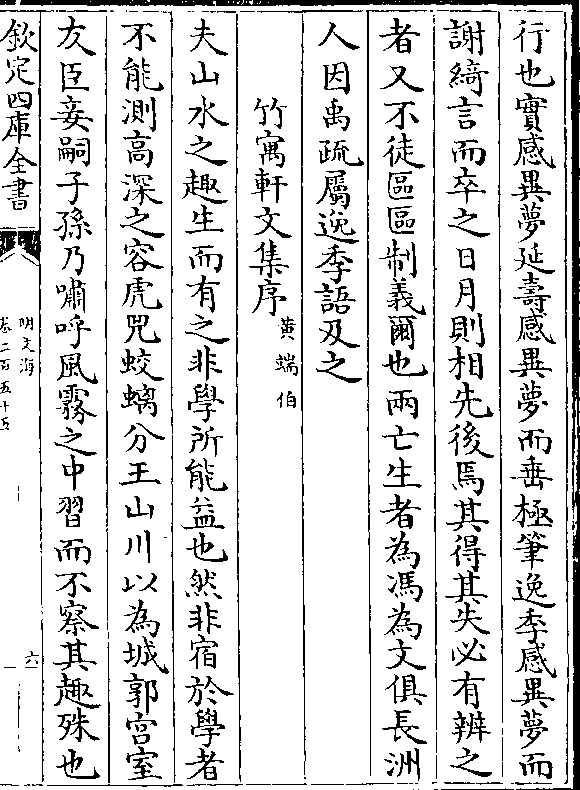 行也實感異夢延壽感異夢而垂極筆逸季感異夢而
謝綺言而卒之日月則相先後焉其得其失必有辨之
者又不徒區區制義爾也兩亡生者為馮為文俱長洲
人因禹疏屬逸季語及之
竹寓軒文集序 黄端伯
夫山水之趣生而有之非學所能益也然非宿於學者
不能測高深之容虎兕蛟螭分王山川以為城郭宫室
友臣妾嗣子孫乃嘯呼風霧之中習而不察其趣殊也
欽定四庫全書
明文海
卷二百五十五
六